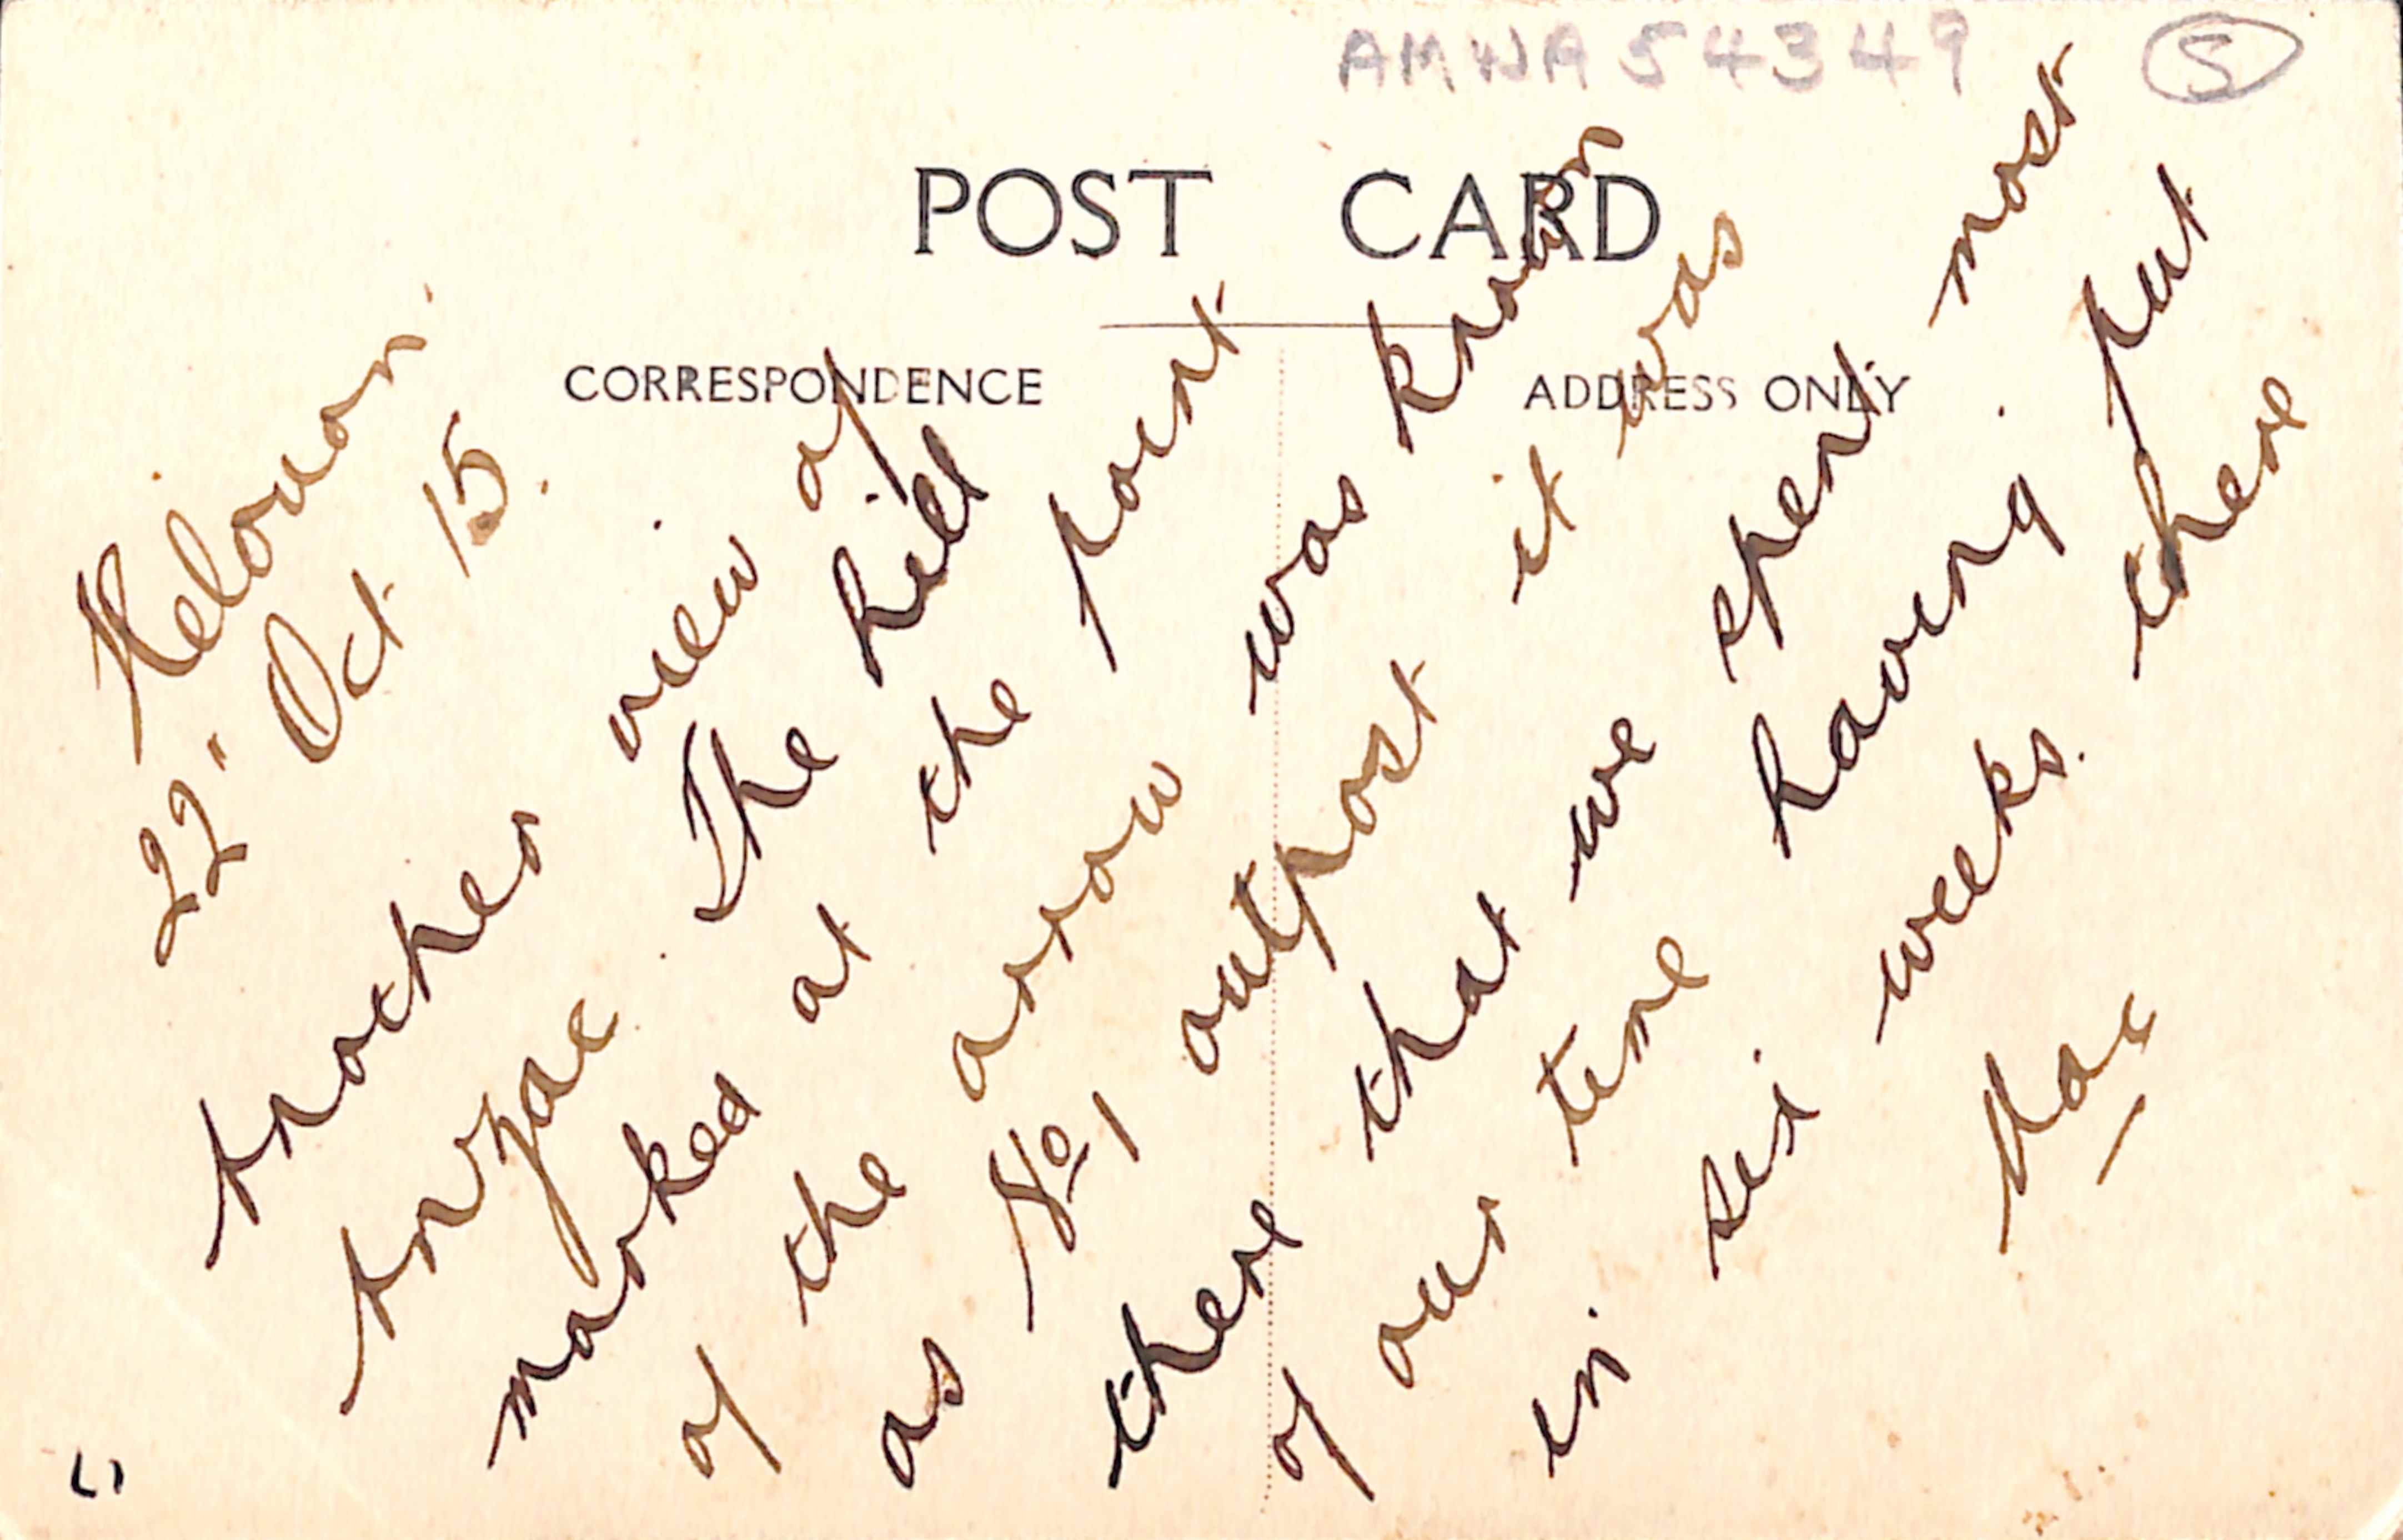 AMWA 54349 (5)
POST CARD
CORRESPONDENCE
ADDRESS ONLY
Helouan.
22" Oct 15.
Another view of
Anzac. The hill
marked at the point
of the arrow was known
as No 1 outpost it was
there that we spent most
of our time having put
in six weeks. there